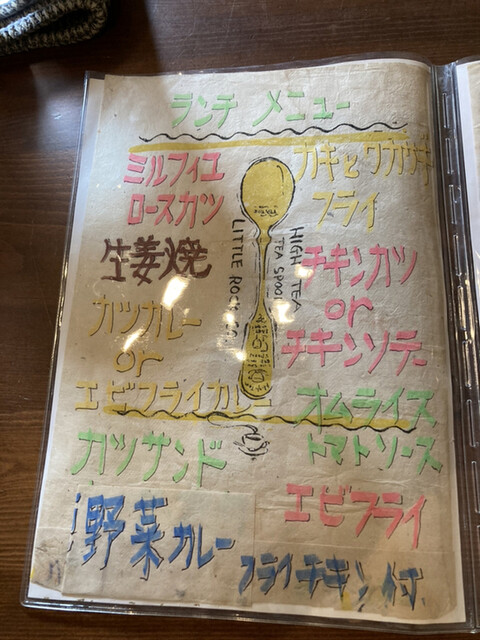 ランチ メニュー
ミルフィユ
ロースカツ
生姜焼
カツカレー
or
エビフライカレー
カツサンド
野菜カレー
カキとワカサギ
フライ
チキンカツ
or
チキンソテー
オムライス
トマトソース
エビフライ
フライチキン付
HIGH TEA
TEA SPOON
LITTLE ROCK